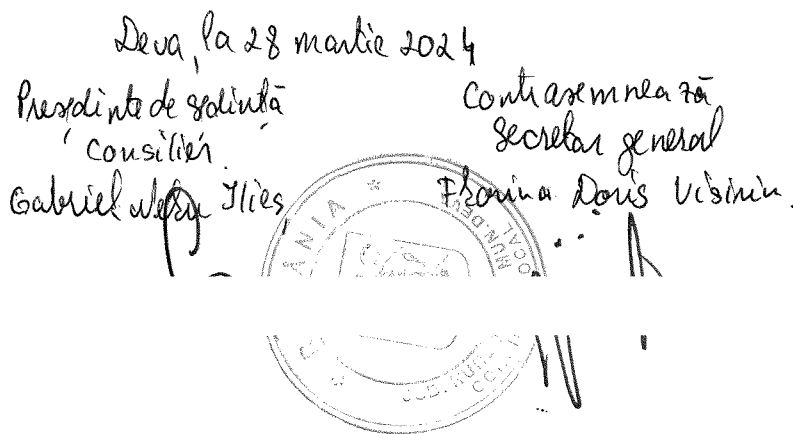 Deva, la 28 martie 2024
Președinte de ședință
consilier
Gabriel Ilieș
Contrasemnează
Secretar general
Florina Doris Visirin
ROMÂNIA
MUN. DEVA
JUD. HUN